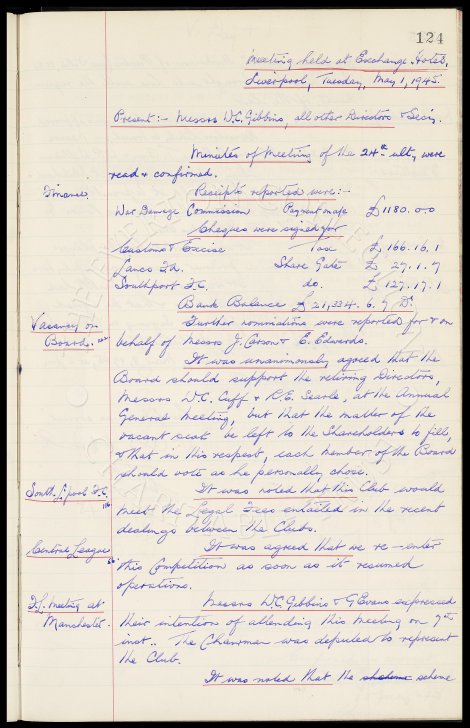 124
Meeting held at Exchange Hotel,
Liverpool, Tuesday, May 1, 1945.
Present:- Messrs W.C. Gibbins, all other Directors & Secy.
Minutes of Meeting of the 24th ult, were
read & confirmed.
Finance. Receipts reported were:-
War Damage Commission Payment made £1180.0.0
Cheques were signed for
Customs & Excise Tax £ 166.16.1
Lancs F.A. Share Gate £ 27.1.7
Southport F.C. do. £ 127.17.1
Bank Balance £21,334.6.9 Dr.
Vacancy on Further nominations were reported for & on
Board. behalf of Messrs J. Carson & E. Edwards.
It was unanimously agreed that the
Board should support the retiring Directors,
Messrs W.C. Cuff & R.E. Searle, at the Annual
General Meeting, but that the matter of the
vacant seat be left to the Shareholders to fill,
& that in this respect, each member of the Board
should vote as he personally chose.
South L'pool F.C. It was noted that this Club would
meet the Legal Fees entailed in the recent
dealings between the Clubs.
Central League It was agreed that we re-enter
this Competition as soon as it resumed
operations.
F.L. Meeting at Messrs W.C. Gibbins & G Evans expressed
Manchester. their intention of attending this Meeting on 7th
inst.. The Chairman was deputed to represent
the Club.
It was noted that the scheme scheme